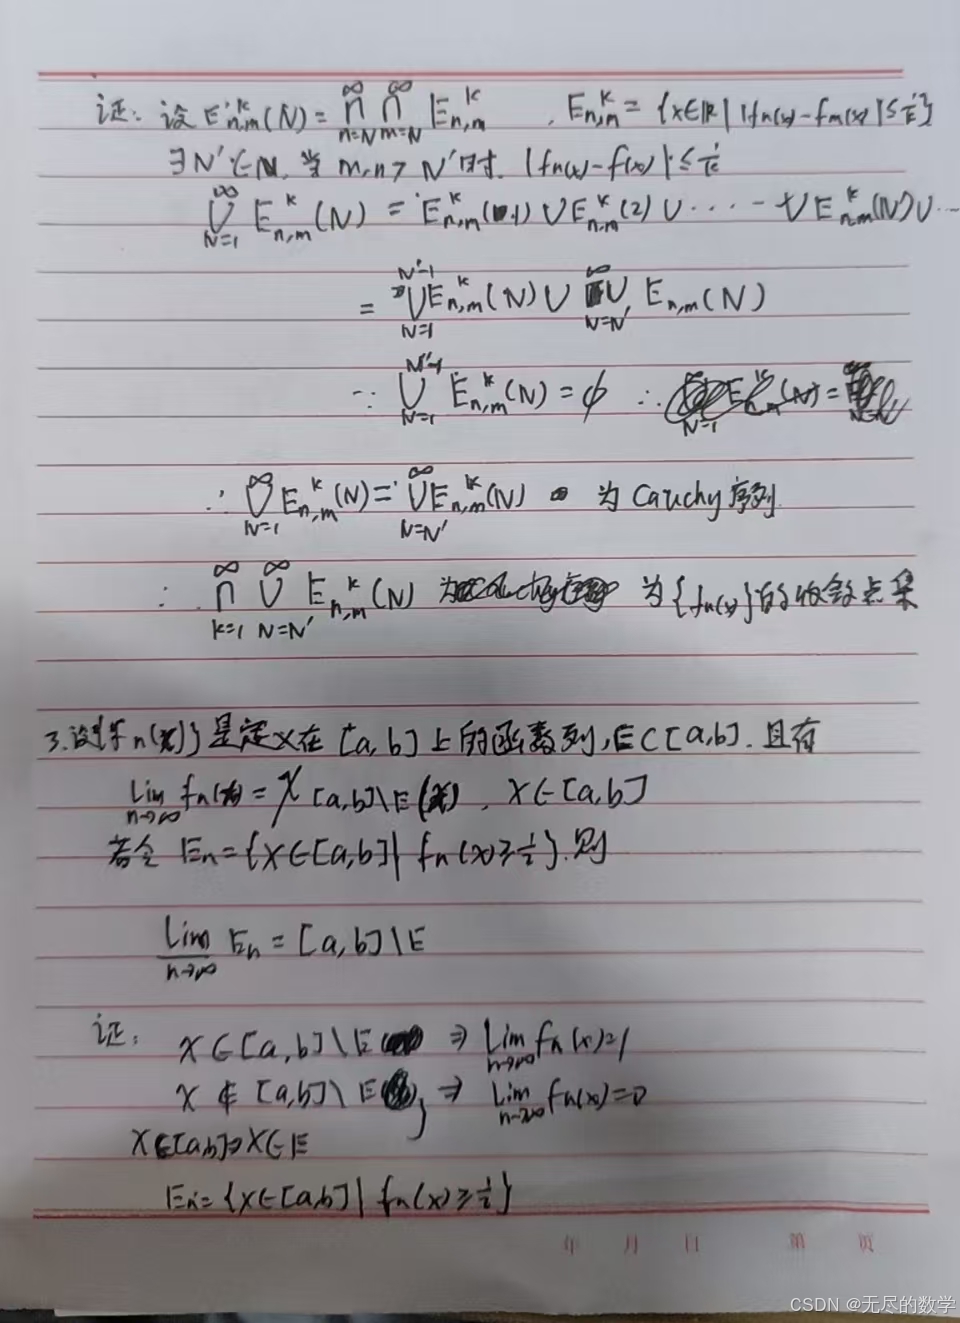 证: 设 E^k_{n,m}(N) = ∞∩n=N ∞∩m=N E^k_{n,m} , E^k_{n,m} = {x∈R | |fn(x)-fm(x)|≤1/k}
∃N'∈N, 当 m,n>N'时. |fn(x)-f(x)|≤1/k
∞∪N=1 E^k_{n,m}(N) = E^k_{n,m}(1) ∪ E^k_{n,m}(2) ∪ ···· ∪ E^k_{n,m}(N) ∪ ···
= N'-1∪N=1 E^k_{n,m}(N) ∪ ∞∪N=N' E_{n,m}(N)
∵ N'-1∪N=1 E^k_{n,m}(N) = ϕ ∴
∴ ∞∪N=1 E^k_{n,m}(N) = ∞∪N=N' E^k_{n,m}(N) 为 Cauchy 序列.
∴ ∞∩k=1 ∞∪N=N' E^k_{n,m}(N) 为{fn(x)}的收敛点集
3. 设{fn(x)}是定义在[a,b]上的函数列, E⊂[a,b]. 且有
lim n→∞ fn(x) = χ_{[a,b]\E}(x), x∈[a,b]
若令 En={x∈[a,b]| fn(x)≥1/2}. 则
lim n→∞ En = [a,b]\E
证: x∈[a,b]\E ⇒ lim n→∞ fn(x)=1
x∉[a,b]\E } ⇒ lim n→∞ fn(x)=0
x∈[a,b]⇒x∈E
En={x∈[a,b]| fn(x)≥1/2}
年 月 日 第 页
CSDN @无尽的数学